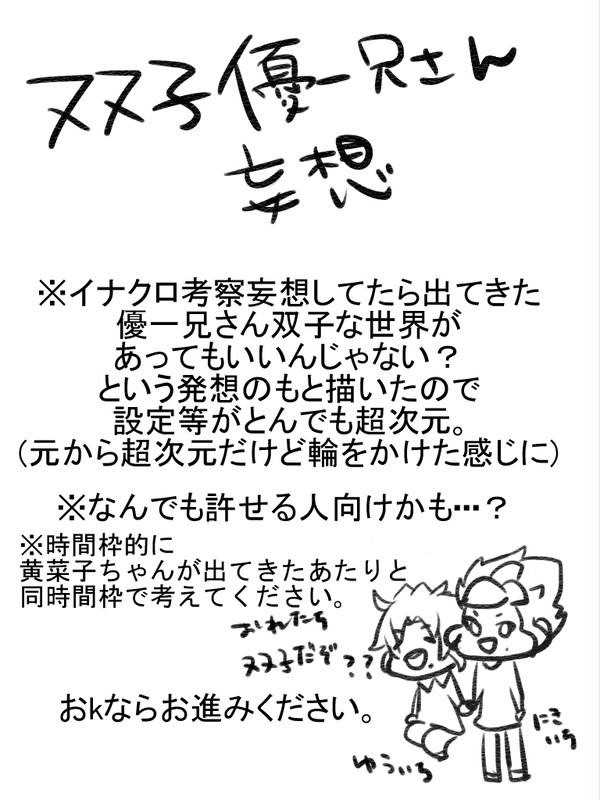 双子優一兄さん
妄想
※イナクロ考察妄想してたら出てきた
優一兄さん双子な世界が
あってもいいんじゃない？
という発想のもと描いたので
設定等がとんでも超次元。
(元から超次元だけど輪をかけた感じに)
※なんでも許せる人向けかも…？
※時間枠的に
黄菜子ちゃんが出てきたあたりと
同時間枠で考えてください。
おれたち
双子だぞ??
おkならお進みください。
ゆういち
にきいち